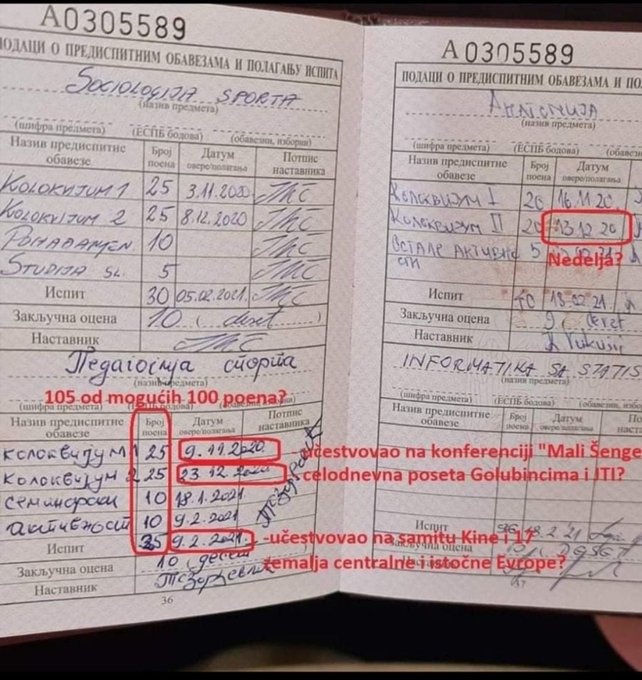 A0305589
ПОДАЦИ О ПРЕДИСПИТНИМ ОБАВЕЗАМА И ПОЛАГАЊУ ИСПИТА
SOCIOLOGIJA SPORTA
(назив предмета)
(шифра предмета) (ЕСПБ бодова) (обавезни, изборни)
Назив предиспитне обавезе Број поена Датум овере/полагања Потпис наставника
KOLOKVIJUM 1 25 3.11.2020
KOLOKVIJUM 2 25 8.12.2020
10
STUDIJA SL. 5
Испит 30 05.02.2021.
Закључна оцена 10 (deset)
Наставник
Педагогија спорта
(назив предмета)
105 od mogućih 100 poena?
(шифра предмета) (ЕСПБ бодова)
Назив предиспитне обавезе Број поена Датум овере/полагања Потпис наставника
КОЛОКВИЈУМ 1 25 9.11.2020.
КОЛОКВИЈУМ 2 25 23.12.2020
СЕМИНАРСКИ 10 18.1.2021
АКТИВНОСТ 10 9.2.2021.
Испит 35 9.2.2021.
Закључна оцена 10 (десет)
Наставник
36
A0305589
ПОДАЦИ О ПРЕДИСПИТНИМ ОБАВЕЗАМА И
АНАТОМИЈА
(назив предмета)
(шифра предмета) (ЕСПБ бодова)
Назив предиспитне обавезе Број поена Датум овере/полагања
КОЛОКВИЈУМ I 20 16.11.20.
КОЛОКВИЈУМ II 20 13.12.20
ОСТАЛЕ АКТИВНОСТИ 5
Nedelja?
Испит 40
Закључна оцена 9
Наставник
INFORMATIKA SA STATIS
(назив предмета)
(шифра предмета) (ЕСПБ бодова)
Назив предиспитне обавезе
-učestvovao na konferenciji "Mali Šenge
celodnevna poseta Golubincima i JTI?
-učestvovao na samitu Kine i 17
zemalja centralne i istočne Evrope?
Испит
Закључна оцена
Наставник